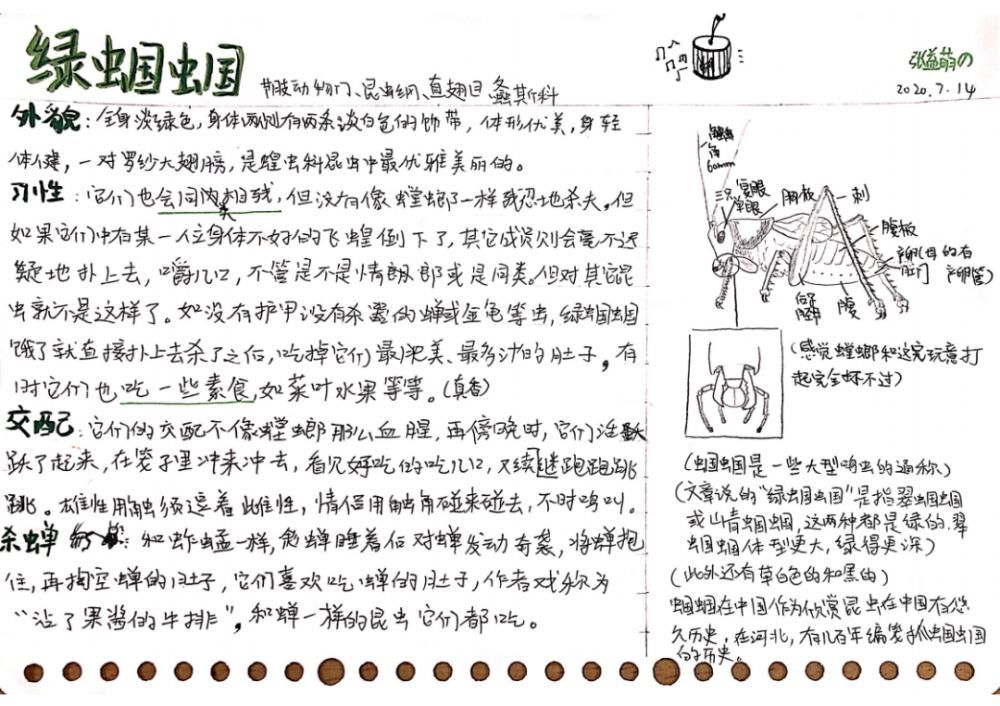 绿蝈蝈
节肢动物门、昆虫纲、直翅目、螽斯科
张益萌の
2020.7.14
外貌：全身淡绿色，身体两侧有两条淡白色的饰带，体形优美，身轻
体健，一对罗纱大翅膀，是蝗虫科昆虫中最优雅美丽的。
习性：它们也会同类相残，但没有像螳螂一样残忍地杀夫。但
如果它们中有某一位身体不好的飞蝗倒下了，其它成员则会毫不迟
疑地扑上去，嚼几口，不管是不是情郎郎或是同类。但对其它昆
虫就不是这样了。如没有护甲没有杀器的蝉或金龟等虫，绿蝈蝈
饿了就直接扑上去杀了之后，吃掉它们最肥美、最多汁的肚子。有
时它们也吃一些素食，如菜叶水果等等。（真香）
交配：它们的交配不像螳螂那么血腥，再傍晚时，它们活
跃了起来，在笼子里冲来冲去，看见好吃的吃几口，又继续跑跑跳
跳。雄性用触须逗着雌性，情侣用触角碰来碰去，不时鸣叫。
杀蝉：和蚱蜢一样，趁蝉睡着后对蝉发动奇袭，将蝉抱
住，再掏空蝉的肚子，它们喜欢吃蝉的肚子，作者戏称为
“沾了果酱的牛排”，和蝉一样的昆虫它们都吃。
触
角
60mm
三只单眼
复眼
胸板
刺
腹板
产卵（母的有
肛门
产卵管）
后腿
腹
（感觉螳螂和这完玩意打
起完全坏不过）
（蝈蝈是一些大型鸣虫的通称）
（文章说的“绿蝈蝈”是指翠蝈蝈
或山青蝈蝈，这两种都是绿的，翠
蝈蝈体型更大，绿得更深）
（此外还有草白色的和黑的）
蝈蝈在中国作为欣赏昆虫在中国有悠
久历史，在河北，有几百年编笼抓蝈蝈
的历史。